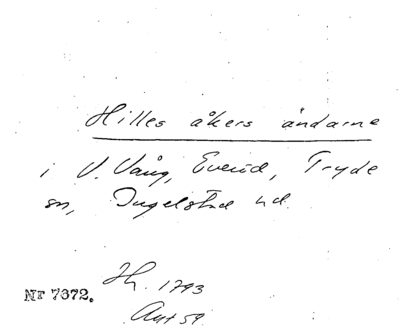 Hilles åkers ändarne
i V. Vång, Everöd, Tryde
sn, Ingelstad hd.
Nr 7372.
Th. 1793
Ant 59